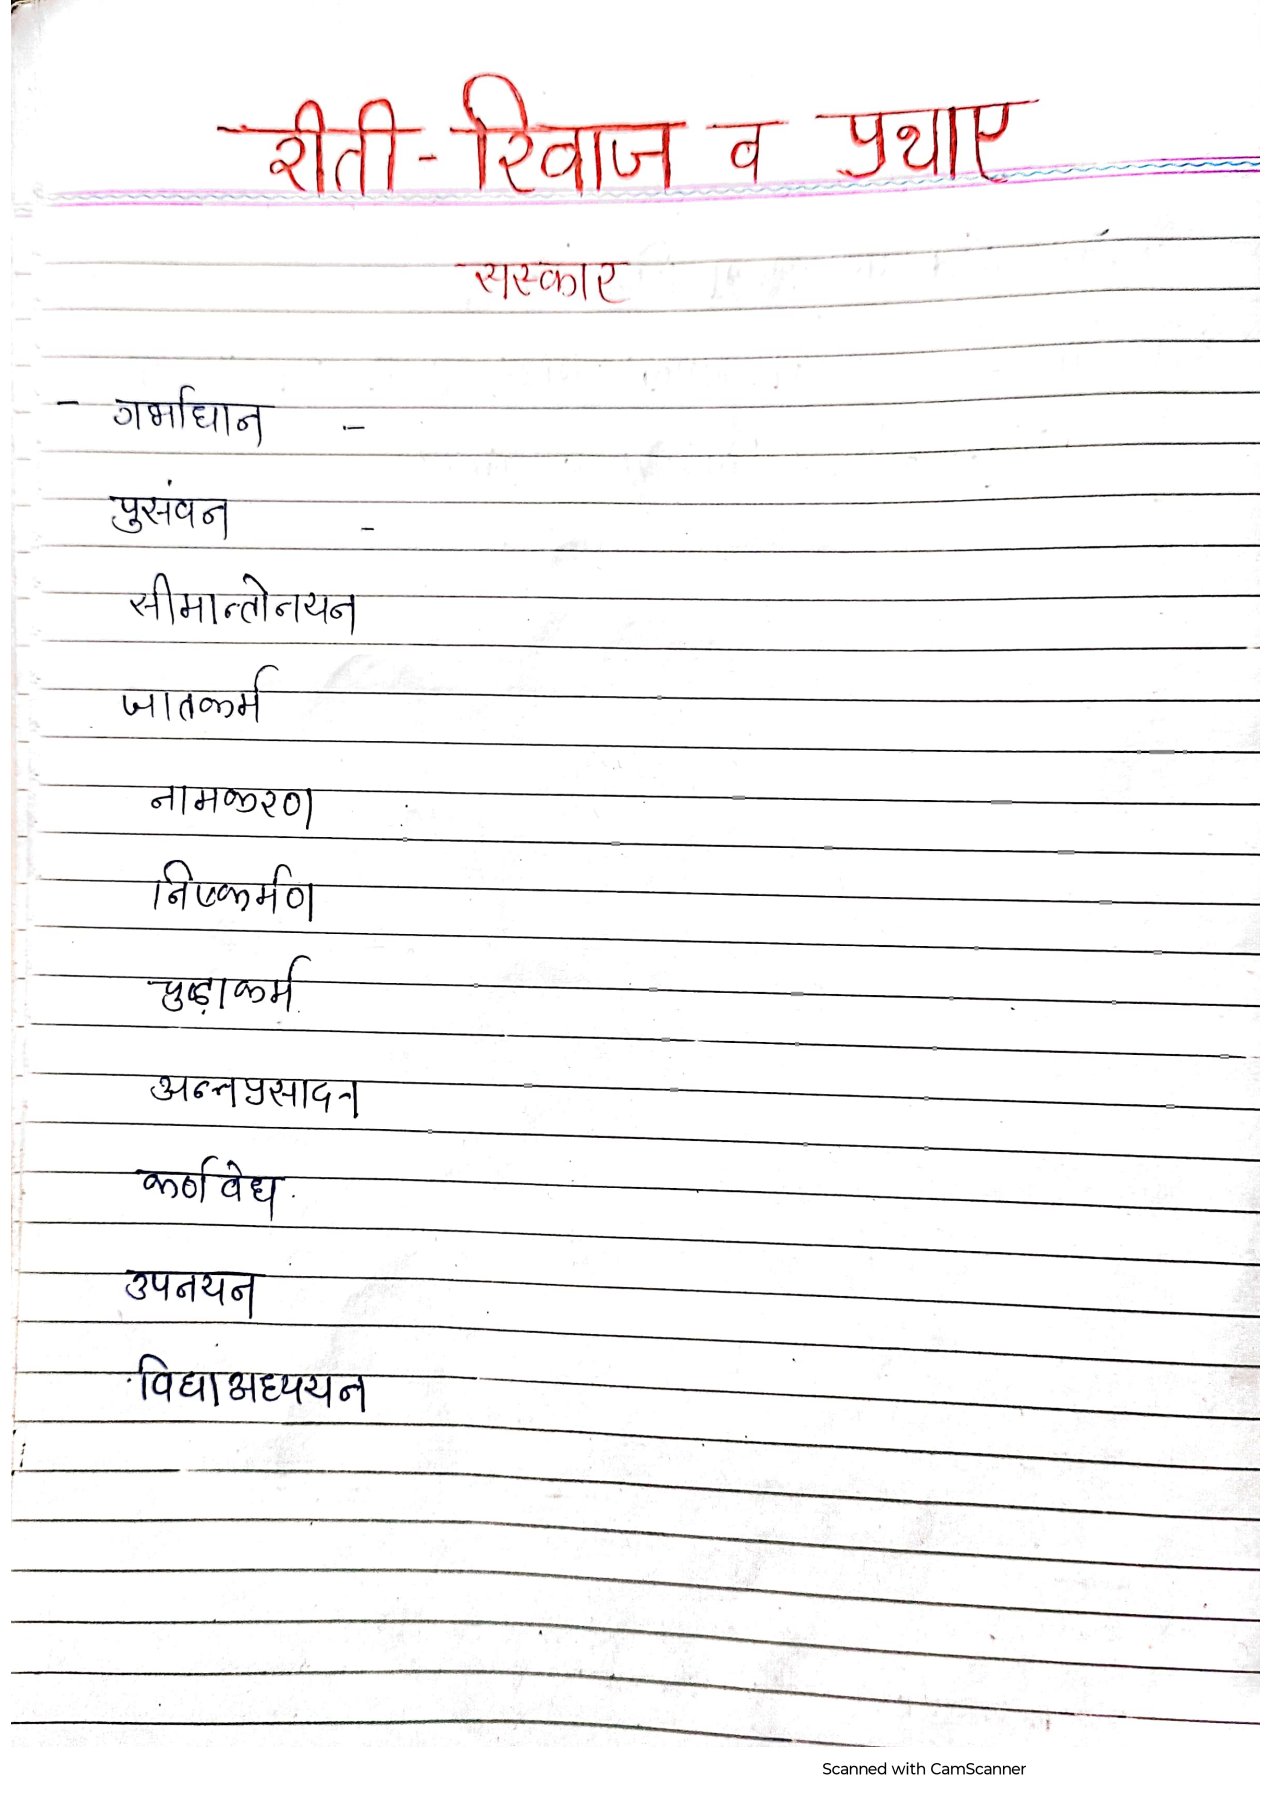 रीती - रिवाज व प्रथाए
सस्कार
- गर्भाधान -
पुसंवन -
सीमान्तोनयन
जातकर्म
नामकरण
निष्कर्मण
चुड़ाकर्म
अन्नप्रसादन
कर्णवेध
उपनयन
विद्याअध्ययन
Scanned with CamScanner